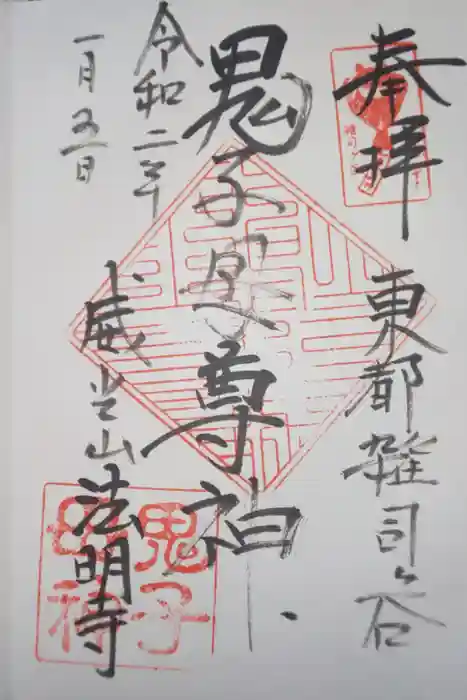 奉拝
東都雑司ヶ谷
鬼子母尊神
令和二年
一月五日
威光山
法明寺
鬼子
母神